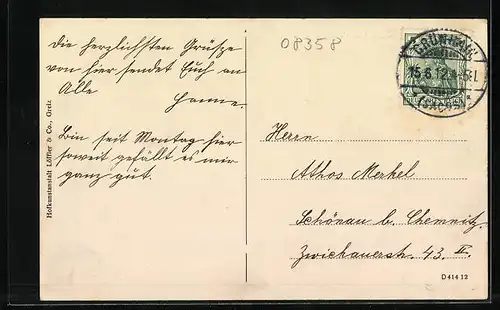 Die herzlichsten Grüsze
von hier sendet Euch an
Alle
Hanne.
Bin seit Montag hier
soweit gefällt es mir
ganz gut.
08358
GRÜNHAIN
15.6.12
(SACHSEN)
Herrn
Athos Merkel
Schönau b. Chemnitz
Zwickauerstr. 43. II.
Hofkunstanstalt Löffler & Co., Greiz
D 414 12